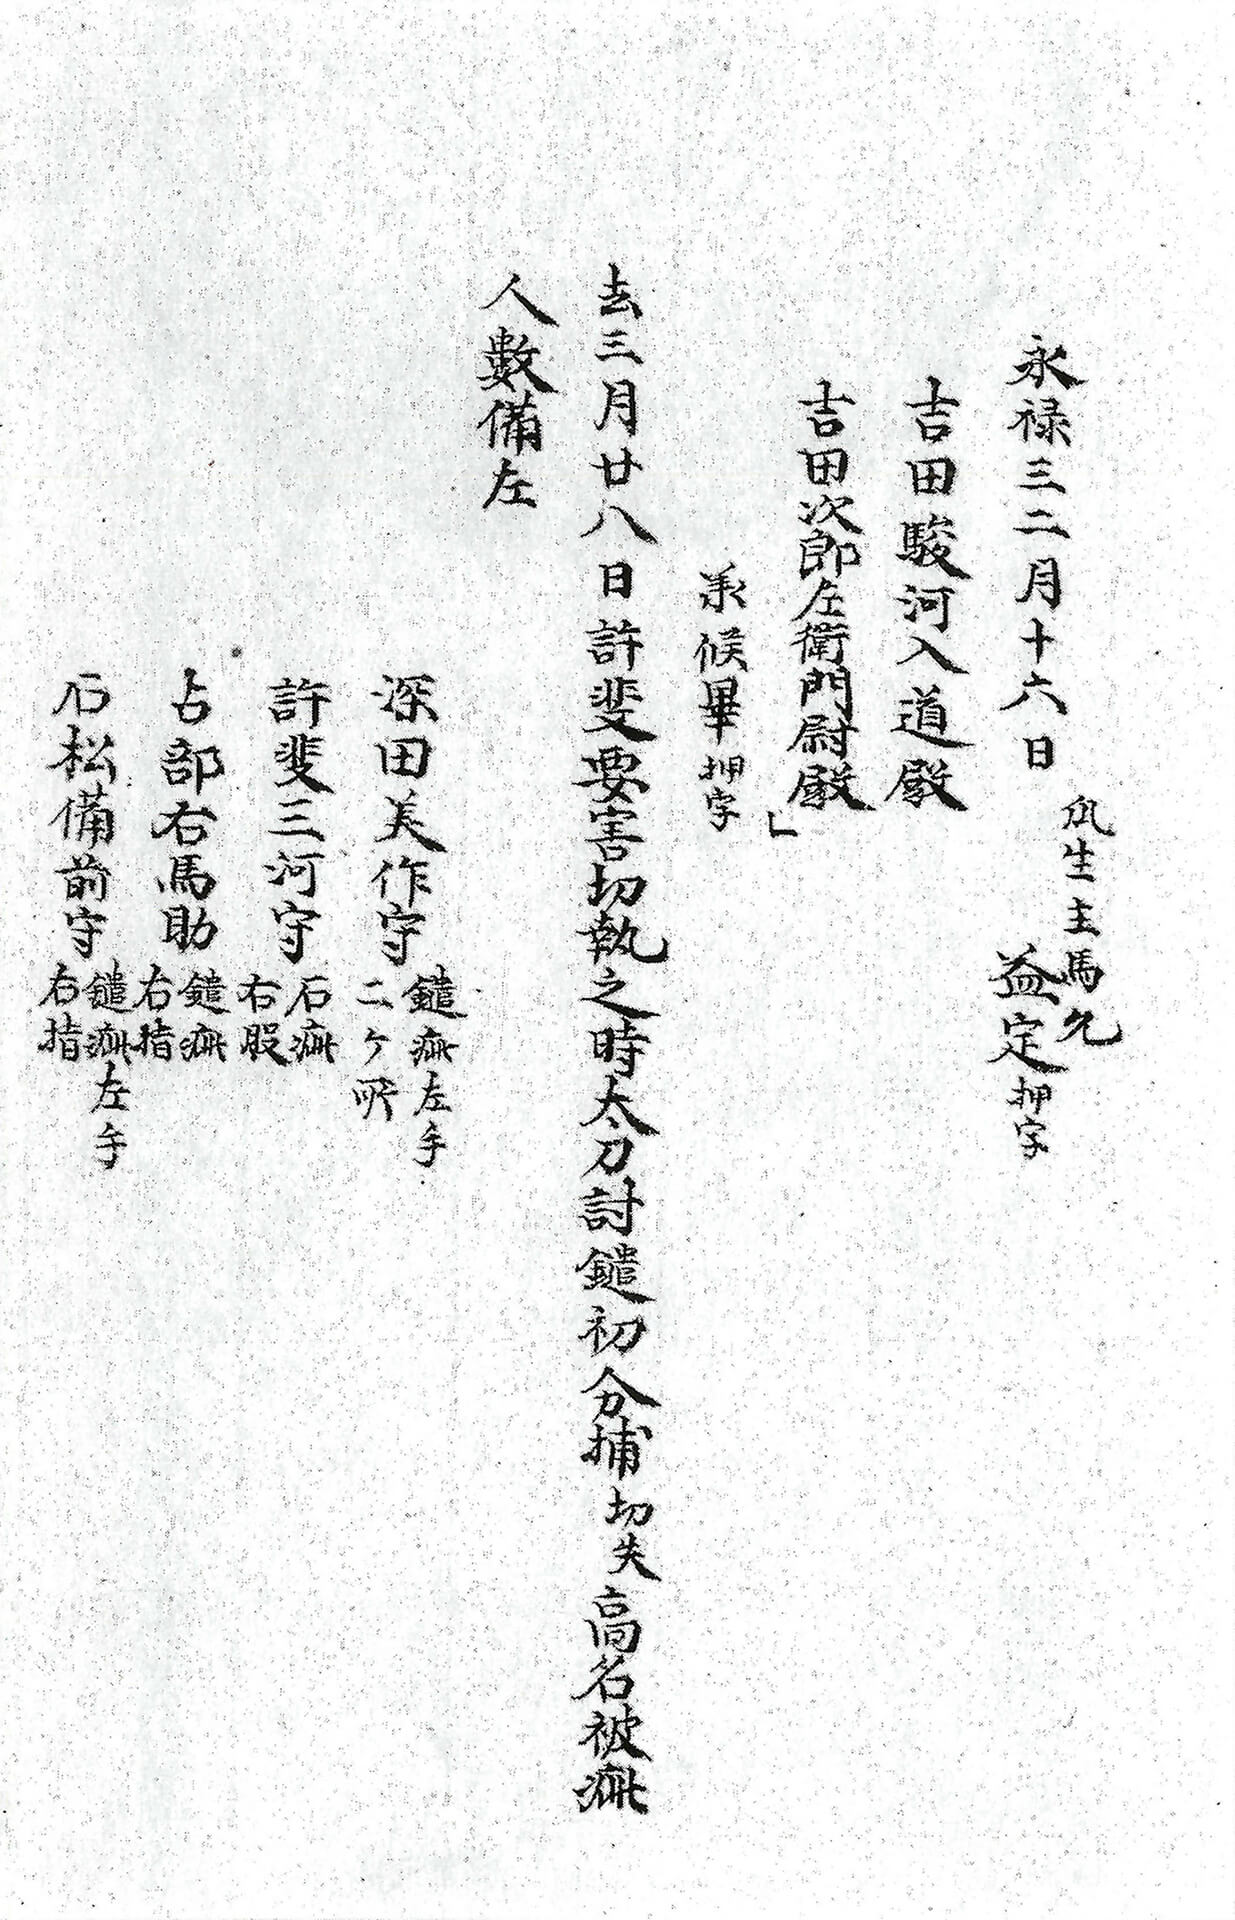 永禄三二月十六日
瓜生主馬允
益定押字
吉田駿河入道殿
吉田次郎左衛門尉殿」
承候畢押字
去三月廿八日許斐要害切執之時太刀討鑓初分捕切失高名被疵
人數備左
深田美作守 鑓疵左手
二ケ所
許斐三河守 石疵
右股
占部右馬助 鑓疵
右指
石松備前守 鑓疵左手
右指